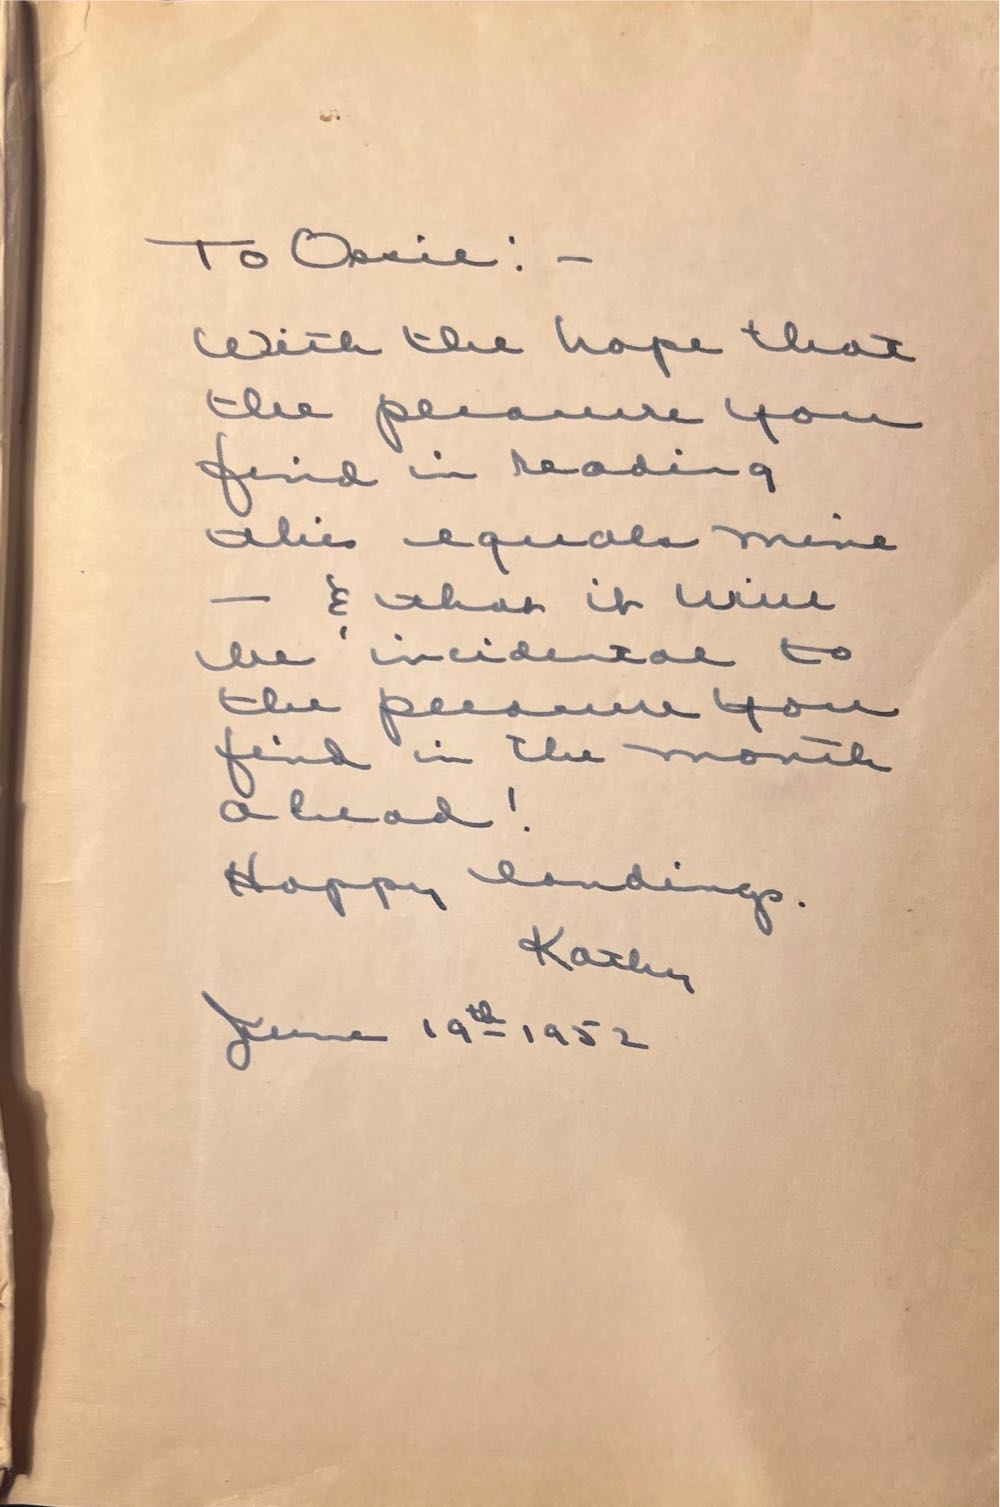 To Ossie: —
With the hope that
the pleasure you
find in reading
this equals mine
— & that it will
be incidental to
the pleasure you
find in the month
ahead!
Happy landings.
Kathy
June 19th 1952